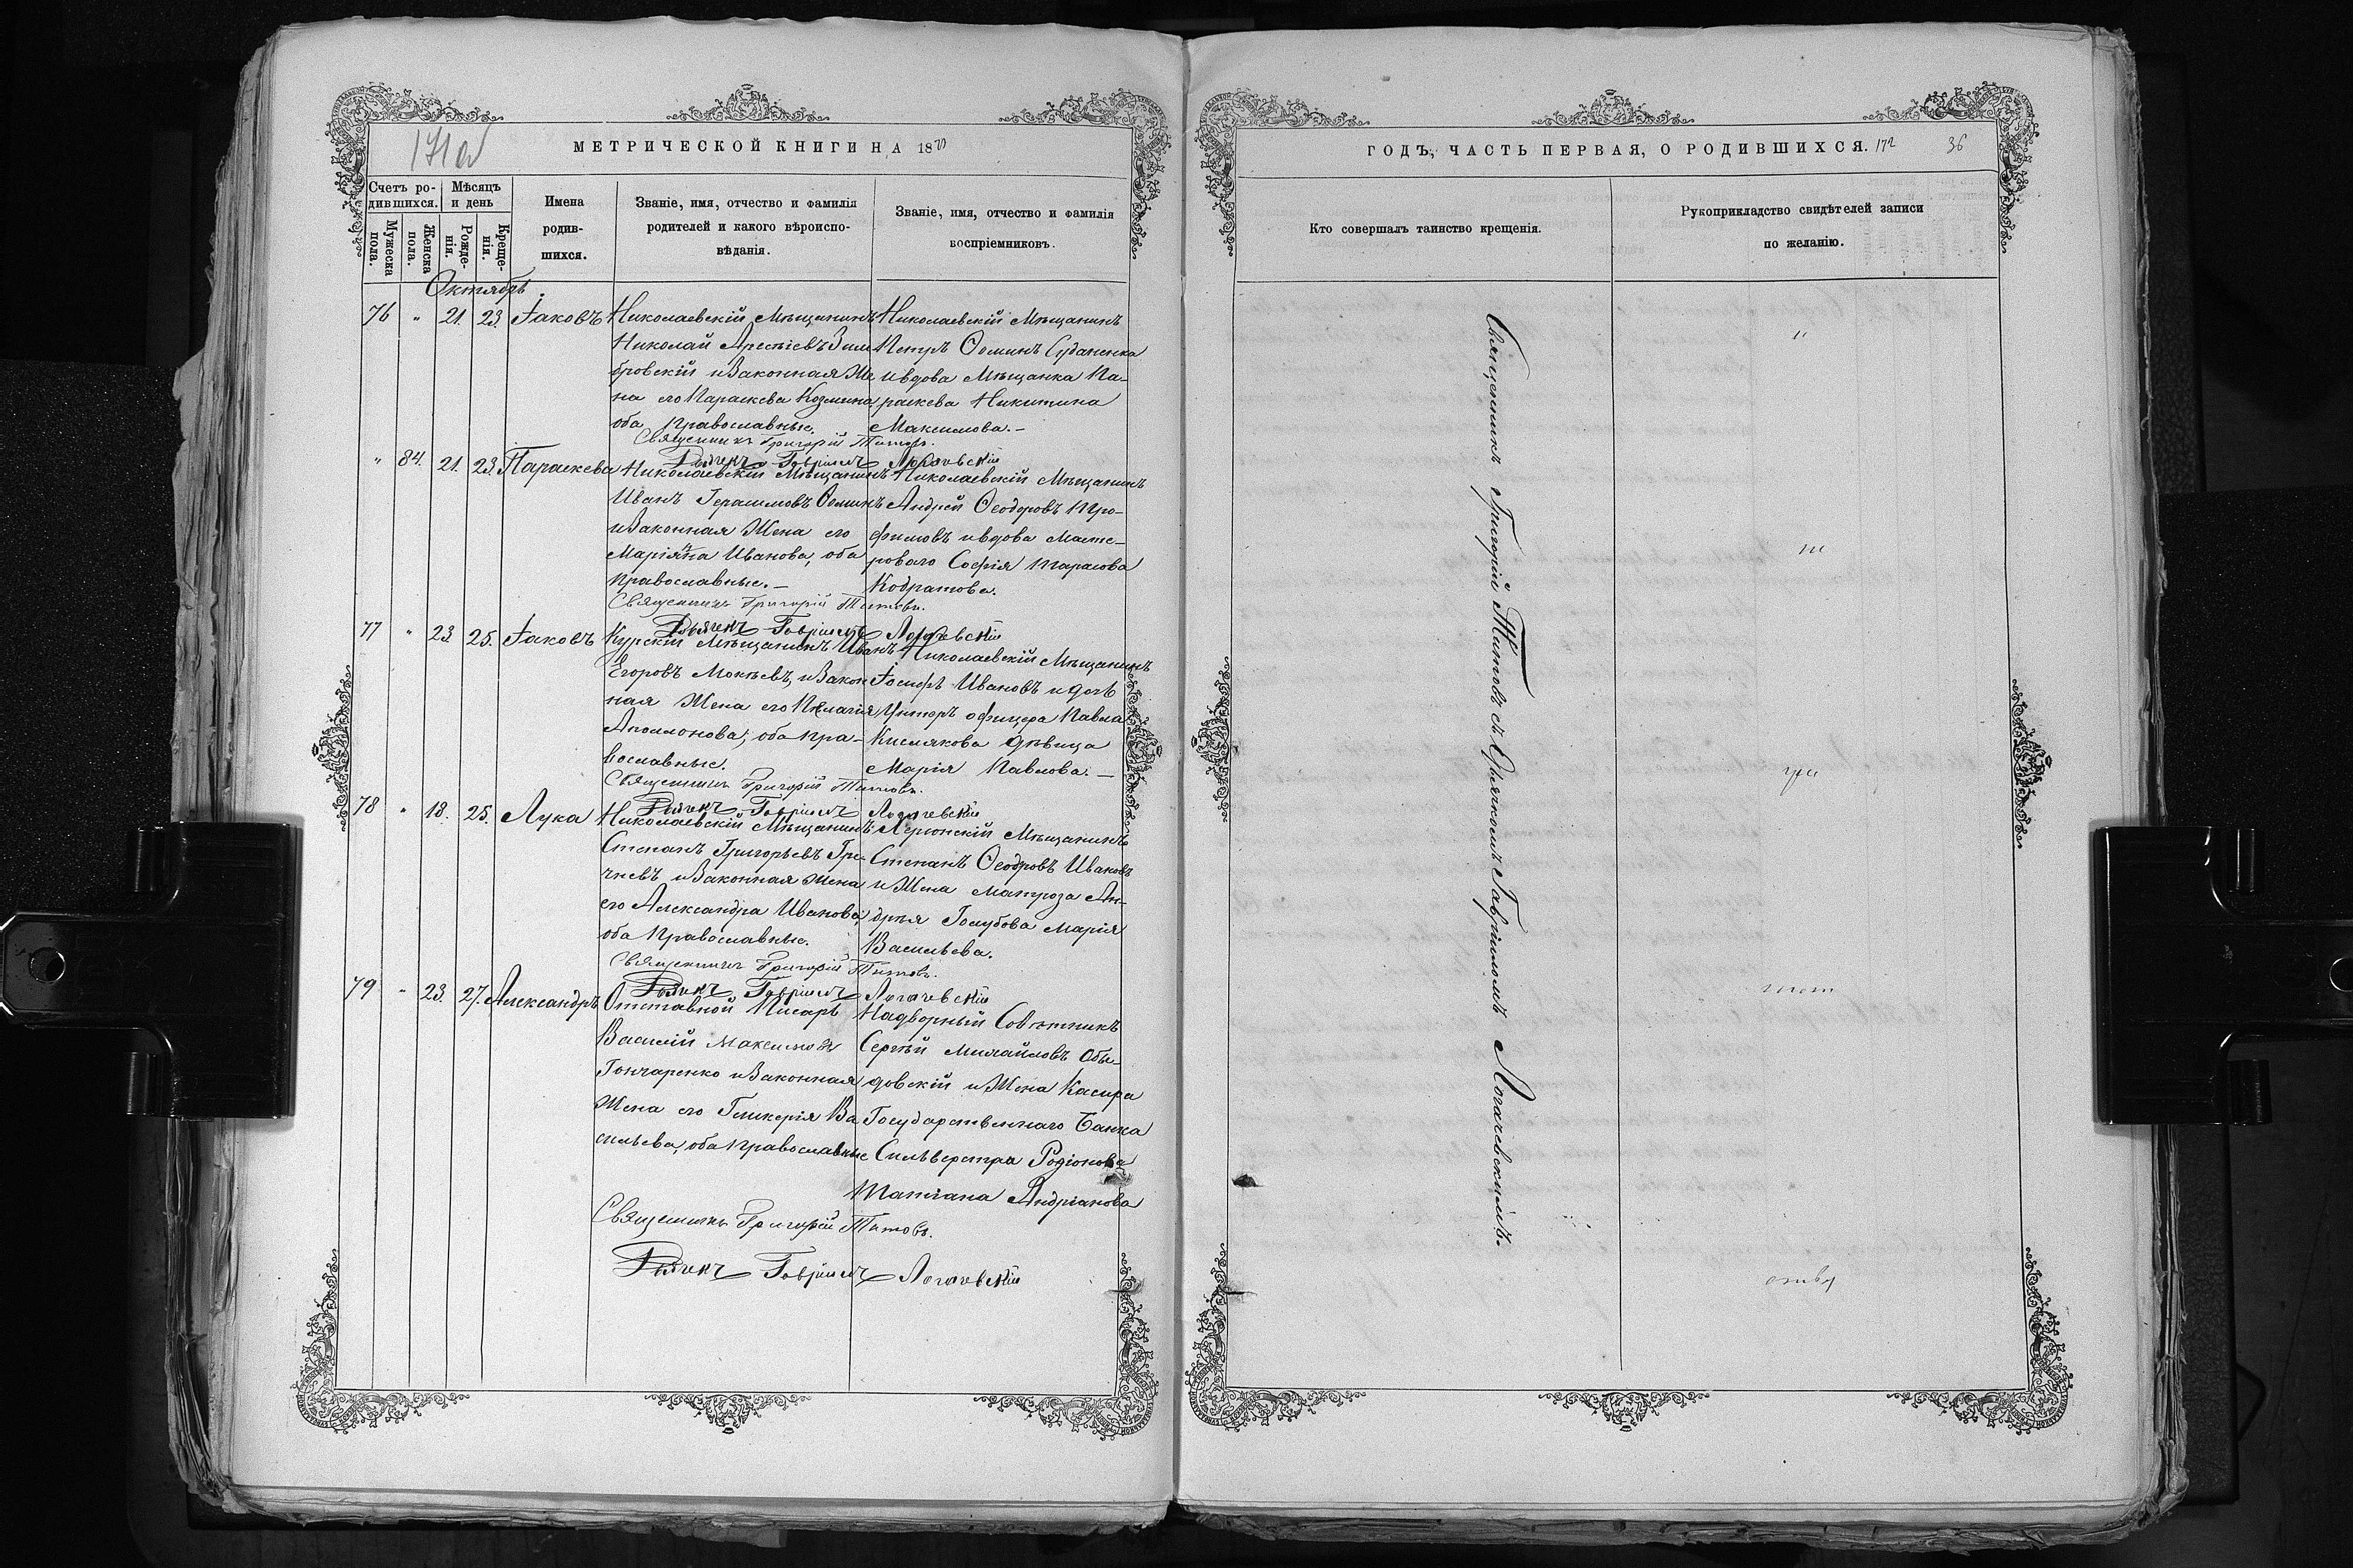 МЕТРИЧЕСКОЙ КНИГИ НА 18
Счетъ родившихся.
Мѣсяцъ и день
Мужеска пола.
Женска пола.
Рожденія.
Крещенія.
Имена родившихся.
Званіе, имя, отчество и фамилія
родителей и какого вѣроиспо-
вѣданія.
Званіе, имя, отчество и фамилія
воспріемниковъ.
Октябрь.
76 " 21. 23. Іаковъ
Николаевскій Мѣщанинъ
Николай
бровскій и Законная Же
на его Параскева Козмина
оба Православные.
Николаевскій Мѣщанинъ
Петръ Ѳоминъ
и вдова Мѣщанка Па-
раскева Никитина
Максимова.-
Священникъ Григорій Титовъ.
Гавріилъ Логачевскій
" 84. 21. 23. Параскева
Николаевскій Мѣщанинъ
Иванъ Герасимовъ Ѳоминъ
и Законная Жена его
Маріанна Иванова, оба
Православные.-
Николаевскій Мѣщанинъ
Андрей Ѳеодоровъ Тро-
фимовъ и вдова Масте-
роваго Софія Тарасова
Кодратова.
Священникъ Григорій Титовъ.
Гавріилъ Логачевскій
77 " 23. 25. Іаковъ
Курскій Мѣщанинъ Иванъ
Егоровъ Мокѣевъ, и Закон
ная Жена его Пелагія
Аполлонова, оба Пра-
вославные.
Николаевскій Мѣщанинъ
Іосифъ Ивановъ и дочь
Унтеръ офицера Павла
Кислякова дѣвица
Марія Павлова.-
Священникъ Григорій Титовъ.
Гавріилъ Логачевскій
78 " 18. 25. Лука
Николаевскій Мѣщанинъ
Степанъ Григорьевъ Гре-
чневъ и Законная Жена
его Александра Иванова,
оба Православные.
Мѣщанинъ
Степанъ Ѳеодоровъ Ивановъ
и Жена Матроза Ан-
дрея Голубова Марія
Васильева.
Священникъ Григорій Титовъ.
Гавріилъ Логачевскій
79 " 23. 27. Александръ
Отставной Писарь
Василій Максимовъ
Гончаренко и Законная
Жена его Гликерія Ва
сильева, оба Православные
Надворный Совѣтникъ
Сергѣй Михайловъ Обы-
довскій и Жена Касира
Государственнаго Банка
Сильверстра Родіонова
Татіана Андріанова
Священникъ Григорій Титовъ.
Гавріилъ Логачевскій
ГОДЪ, ЧАСТЬ ПЕРВАЯ, О РОДИВШИХСЯ. 172
36
Кто совершалъ таинство крещенія.
Рукоприкладство свидѣтелей записи
по желанію.
Священникъ Григорій Титовъ съ Гавріиломъ Логачевскимъ.